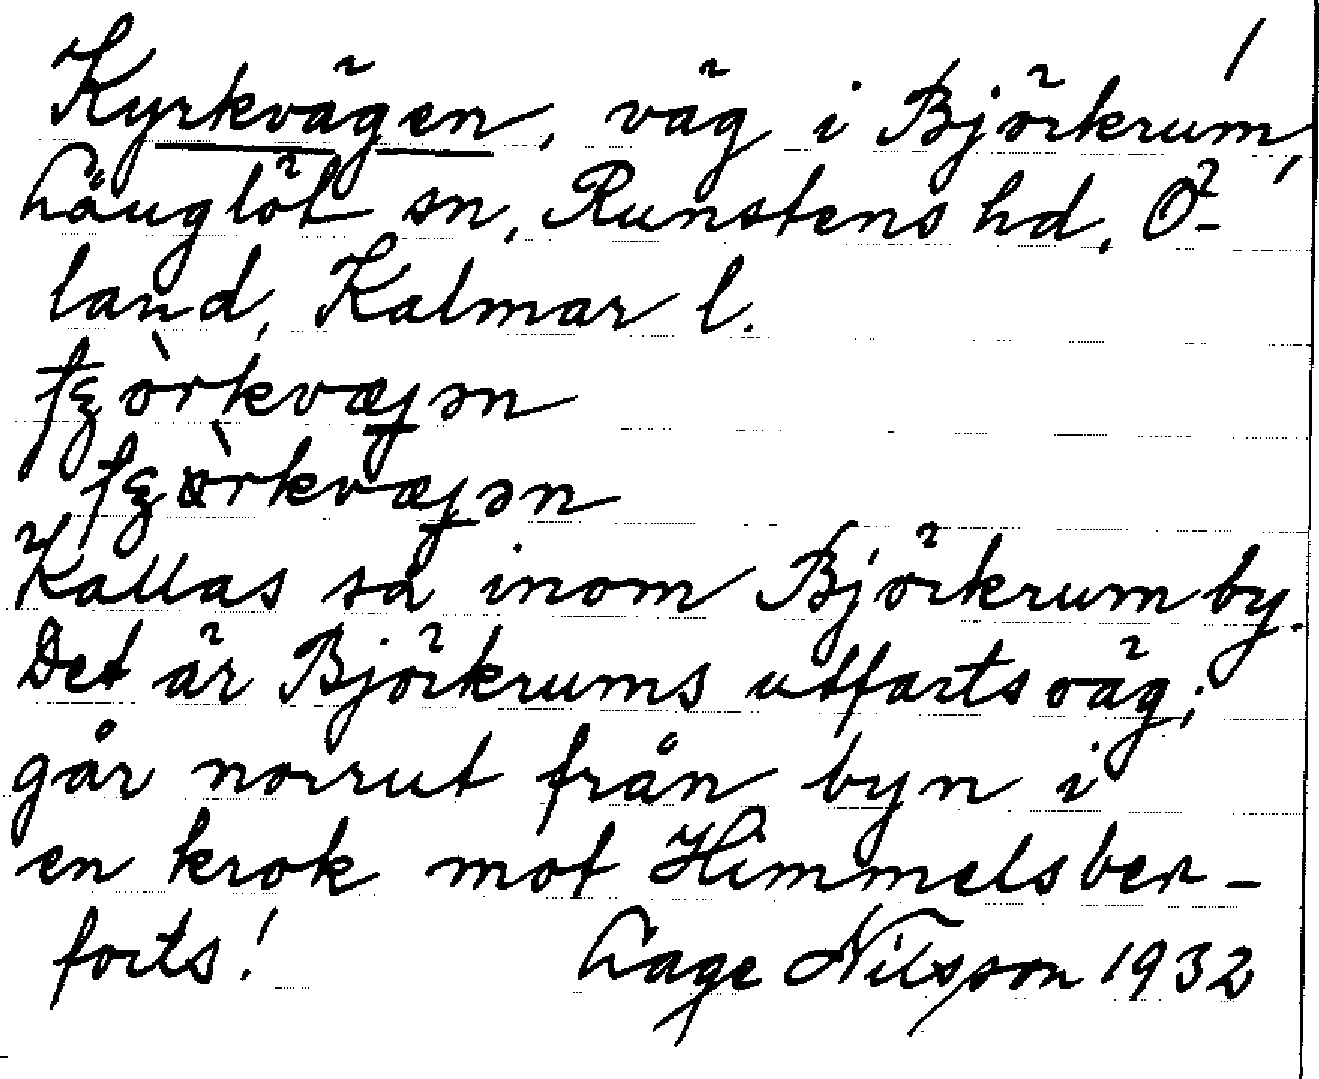 Kyrkvägen, väg i Björkrum, /
Långlöt sn, Runstens hd, Ö-
land, Kalmar l.
Kallas så inom Björkrum by.
Det är Björkrums utfartsväg;
går norrut från byn i
en krok mot Himmelsber-
forts!
Lage Nilsson 1932